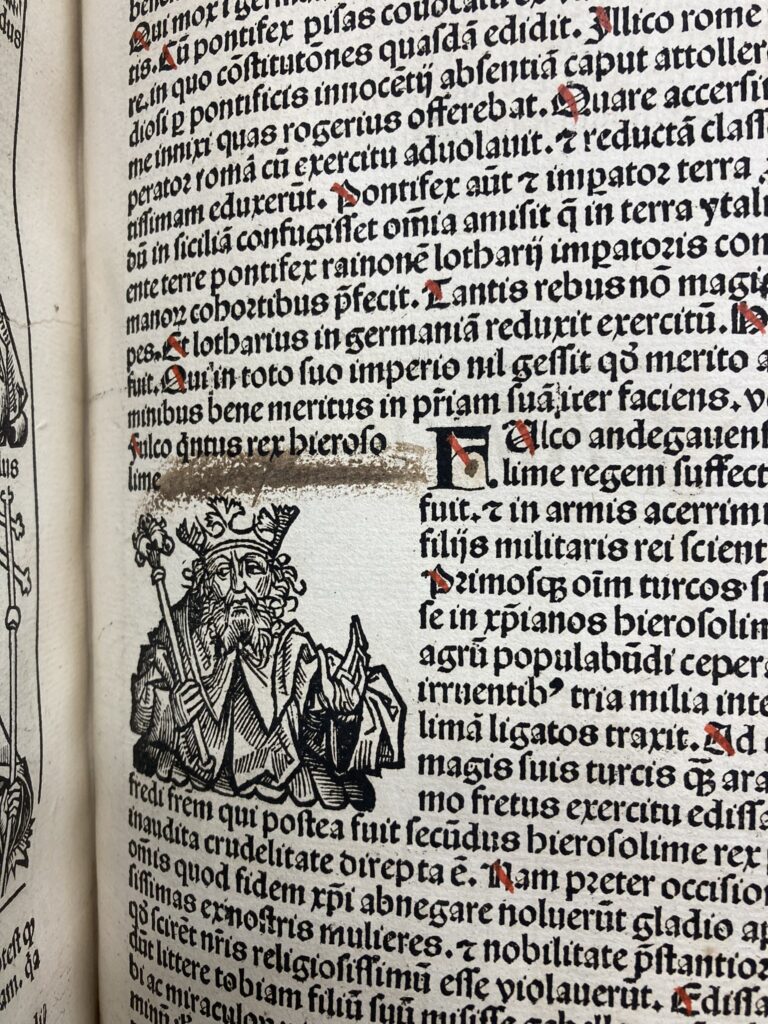 Qui mox i germa
tis. Cū pontifex pisas
re. in quo cōstitutōnes quasdā edidit. Illico rome
diosi ꝑ pontificis innocētij absentiā caput attoller
me innixi quas rogerius offerebat. Quare accersit
perator romā cū exercitu aduolauit. ⁊ reductā class
tissimam eduxerūt. Pontifex aūt ⁊ imꝑator terra
dū in siciliā confugisset om̄ia amisit q̄ in terra ytal
ente terre pontifex rainonē lotharij imꝑatoris con
manoꝝ cohortibus p̄fecit. Tantis rebus nō magis
pes. Et lotharius in germaniā reduxit exercitū.
fuit. Qui in toto suo imperio nil gessit qd̓ merito a
minibus bene meritus in pr̄iam suā iter faciens. v
Fulco q̄ntus rex hieroso
lime
FUlco andegauens
lime regem suffect
fuit. ⁊ in armis acerrim
filijs militaris rei scient
Primosqꝫ oīm turcos s
se in xp̄ianos hierosolim
agrū populabūdi ceper
irruentibꝰ tria milia inte
limā ligatos traxit. Ad
magis suis turcis qꝫ̄ ara
mo fretus exercitu edissa
fredi frem qui postea fuit secūdus hierosolime rex
inaudita crudelitate direpta ē. Nam preter occisio
om̄is quod fidem xp̄i abnegare noluerūt gladio ap
sissimas ex nostris mulieres. ⁊ nobilitate p̄stantior
qd̓ scirēt nr̄is religiosissimū esse violauerūt. Edissa
dūt littere tobiam filiū suū misisse
bi ac miraculor